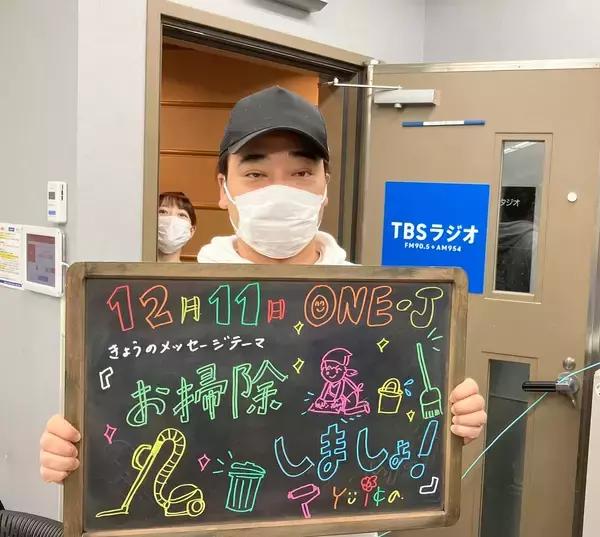 TBSラジオ
FM90.5+AM954
タジオ
12月11日 ONE-J
きょうのメッセージテーマ
『お掃除
しましょ!』
Yuika.